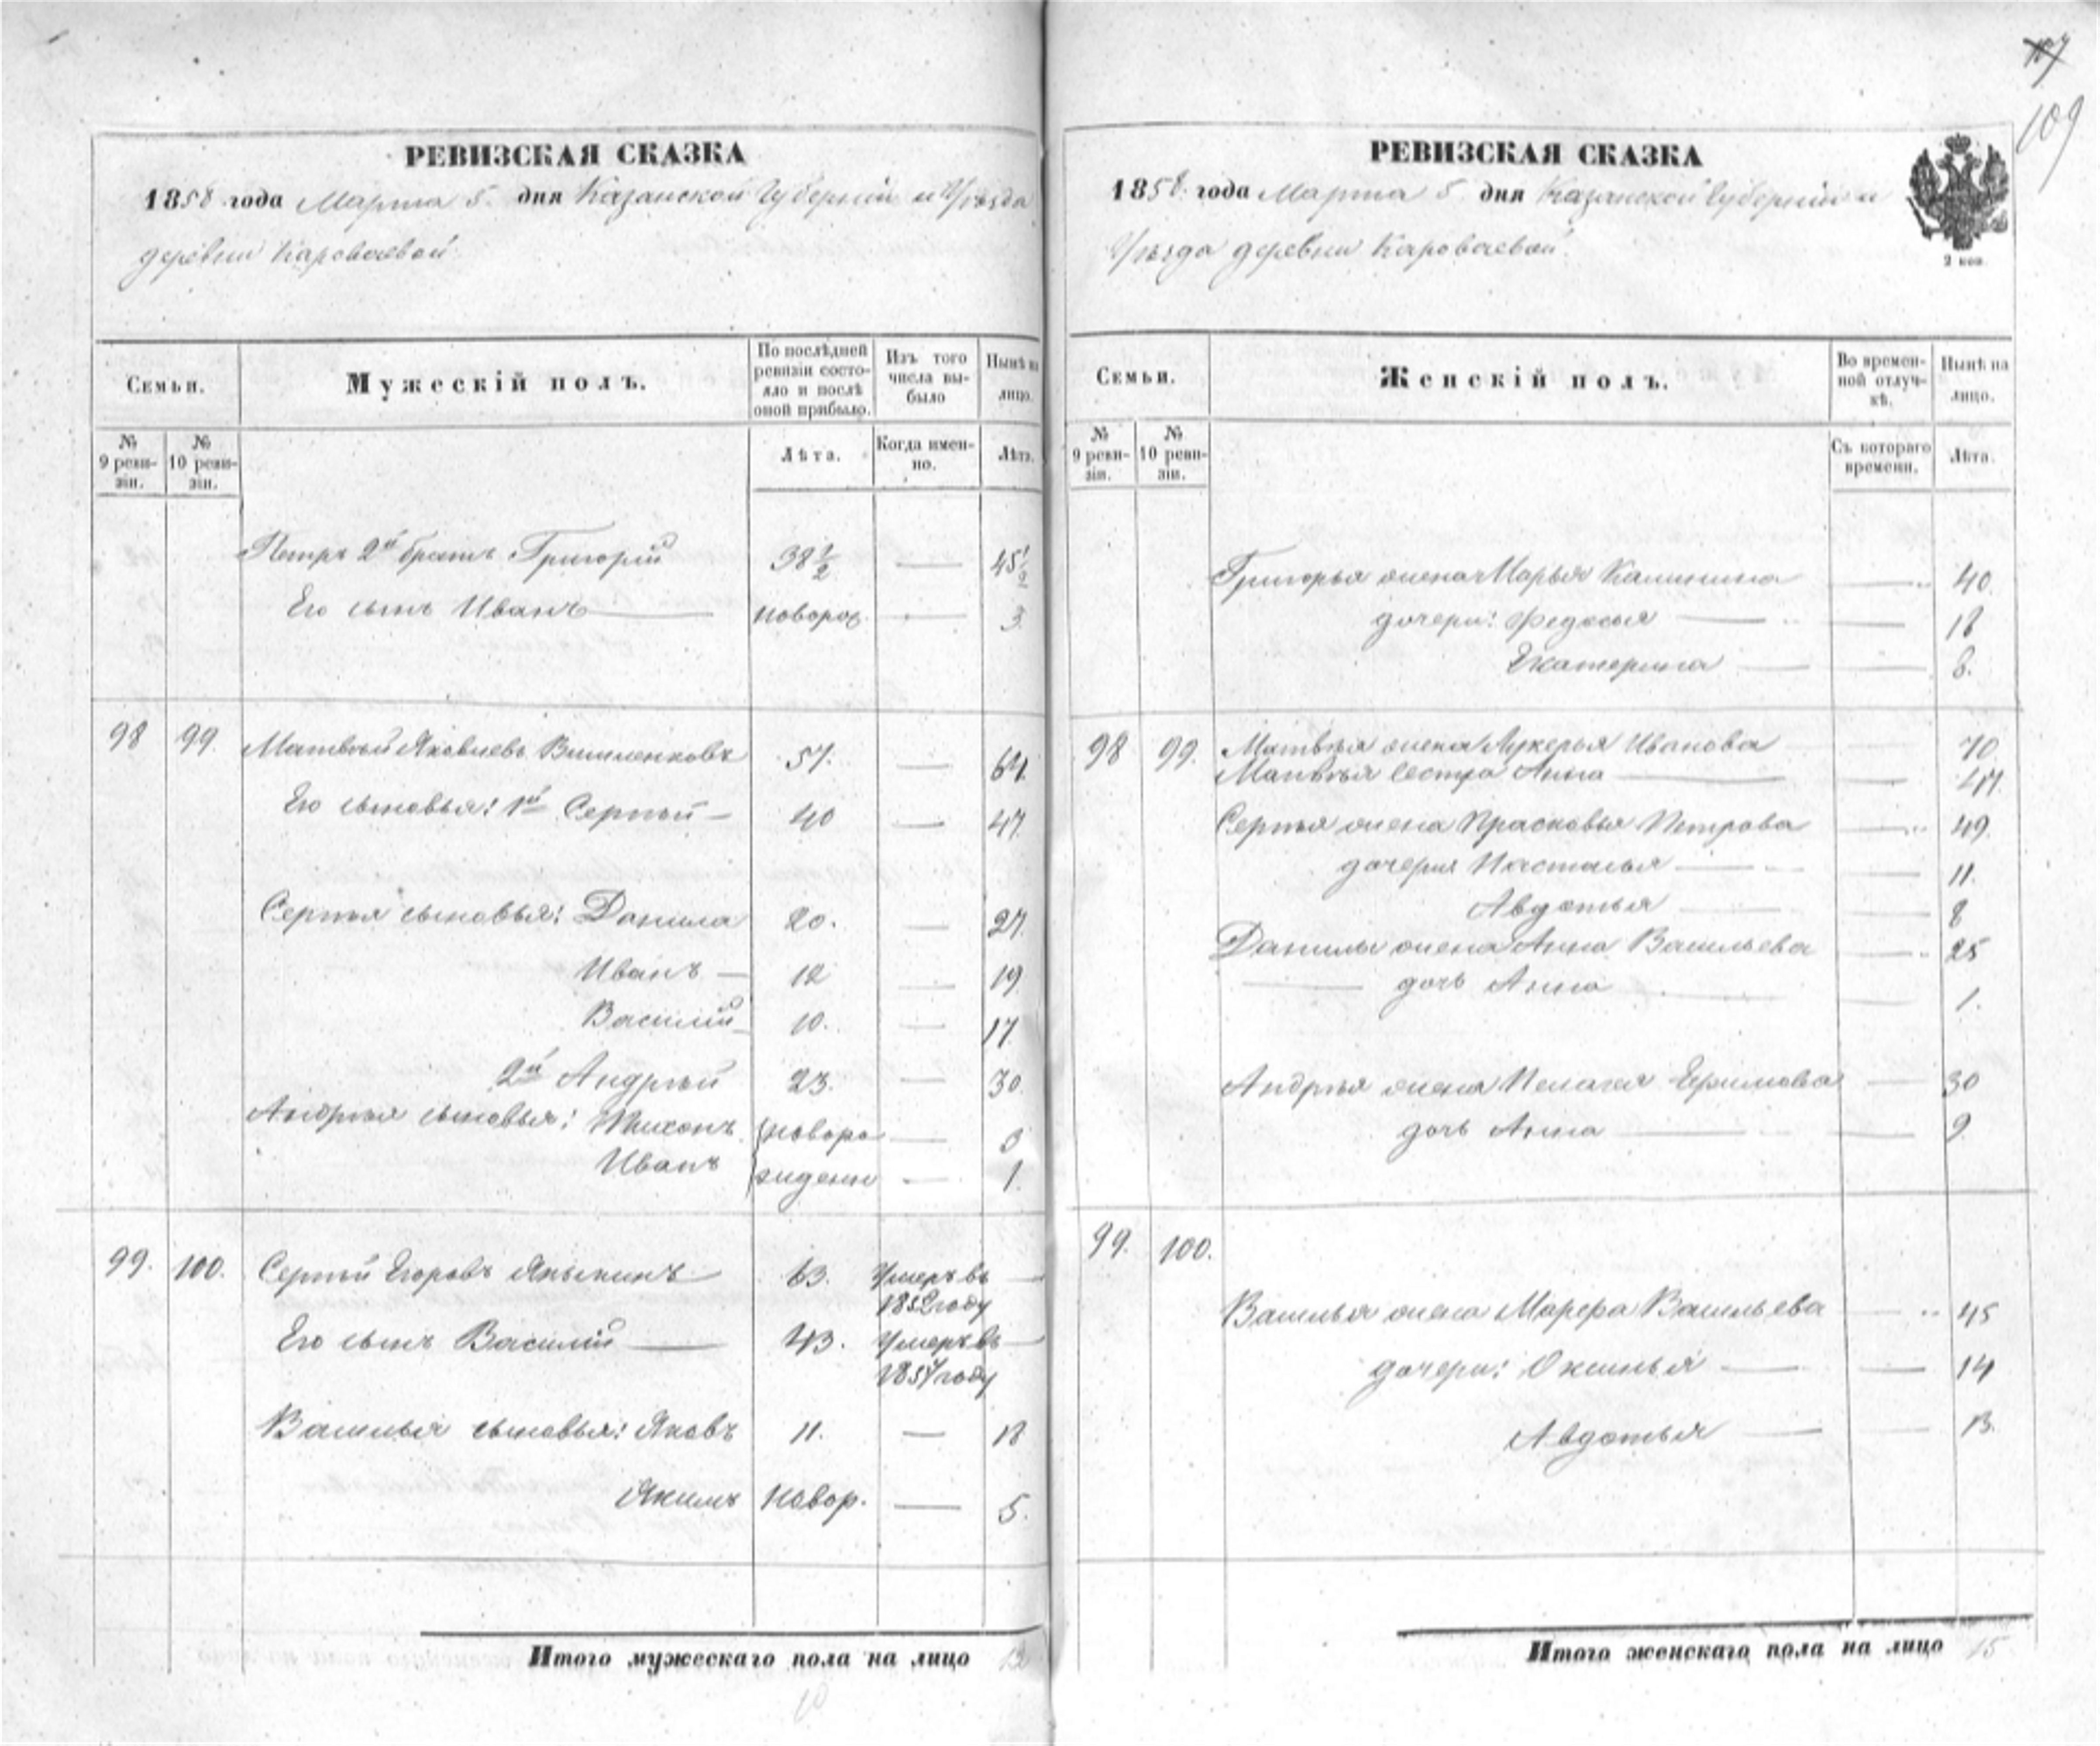 107
109
РЕВИЗСКАЯ СКАЗКА
1858 года Марта 5 дня Казанской Губерніи и Уѣзда
деревни Караваевой
Семьи.
Мужескій полъ.
По послѣдней ревизіи состояло и послѣ оной прибыло.
Изъ того числа выбыло
Нынѣ на лицо.
№ 9 ревизіи.
№ 10 ревизіи.
Лѣта.
Когда именно.
Лѣта.
Петръ 2й братъ Григорій 38½ — 45½
Его сынъ Иванъ — новорож. — 3.
98 99. Матвѣй Яковлевъ 57. — 64.
Его сыновья: 1й Сергѣй — 40 — 47.
Сергѣя сыновья: Данила 20. — 27.
Иванъ — 12 — 19
Василій 10. — 17
2й Андрей 23. — 30.
Андрея сыновья: Тихонъ новоро — 3
Иванъ жденн — 1.
99. 100. Сергѣй Егоровъ 63. Умеръ въ —
1852 году
Его сынъ Василій — 43. Умеръ въ —
1854 году
Василья сыновья: Яковъ 11. — 18
Якимъ Новор. — 5.
Итого мужескаго пола на лицо
10
РЕВИЗСКАЯ СКАЗКА
1858 года Марта 5 дня Казанской Губерніи и
Уѣзда деревни Караваевой.
2 коп.
Семьи.
Женскій полъ.
Во временной отлучкѣ.
Нынѣ на лицо.
№ 9 ревизіи.
№ 10 ревизіи.
Съ котораго времени.
Лѣта.
Григорья жена Марья Калинина — 40.
дочери: Федосья — — 18
Екатерина — — 8.
98 99. Матвѣя жена Лукерья Иванова 70.
Матвѣя сестра Анна — — 47.
Сергѣя жена Прасковья Петрова — 49.
дочери Настасья — — 11.
Авдотья — — 8
Данилы жена Анна Васильева — 25
— дочь Анна — 1.
Андрея жена Пелагея Ефимова — 30
дочь Анна — — 9
99. 100.
Василья жена Марфа Васильева — 45
дочери: Оксинья — — 14
Авдотья — — 13.
Итого женскаго пола на лицо 15